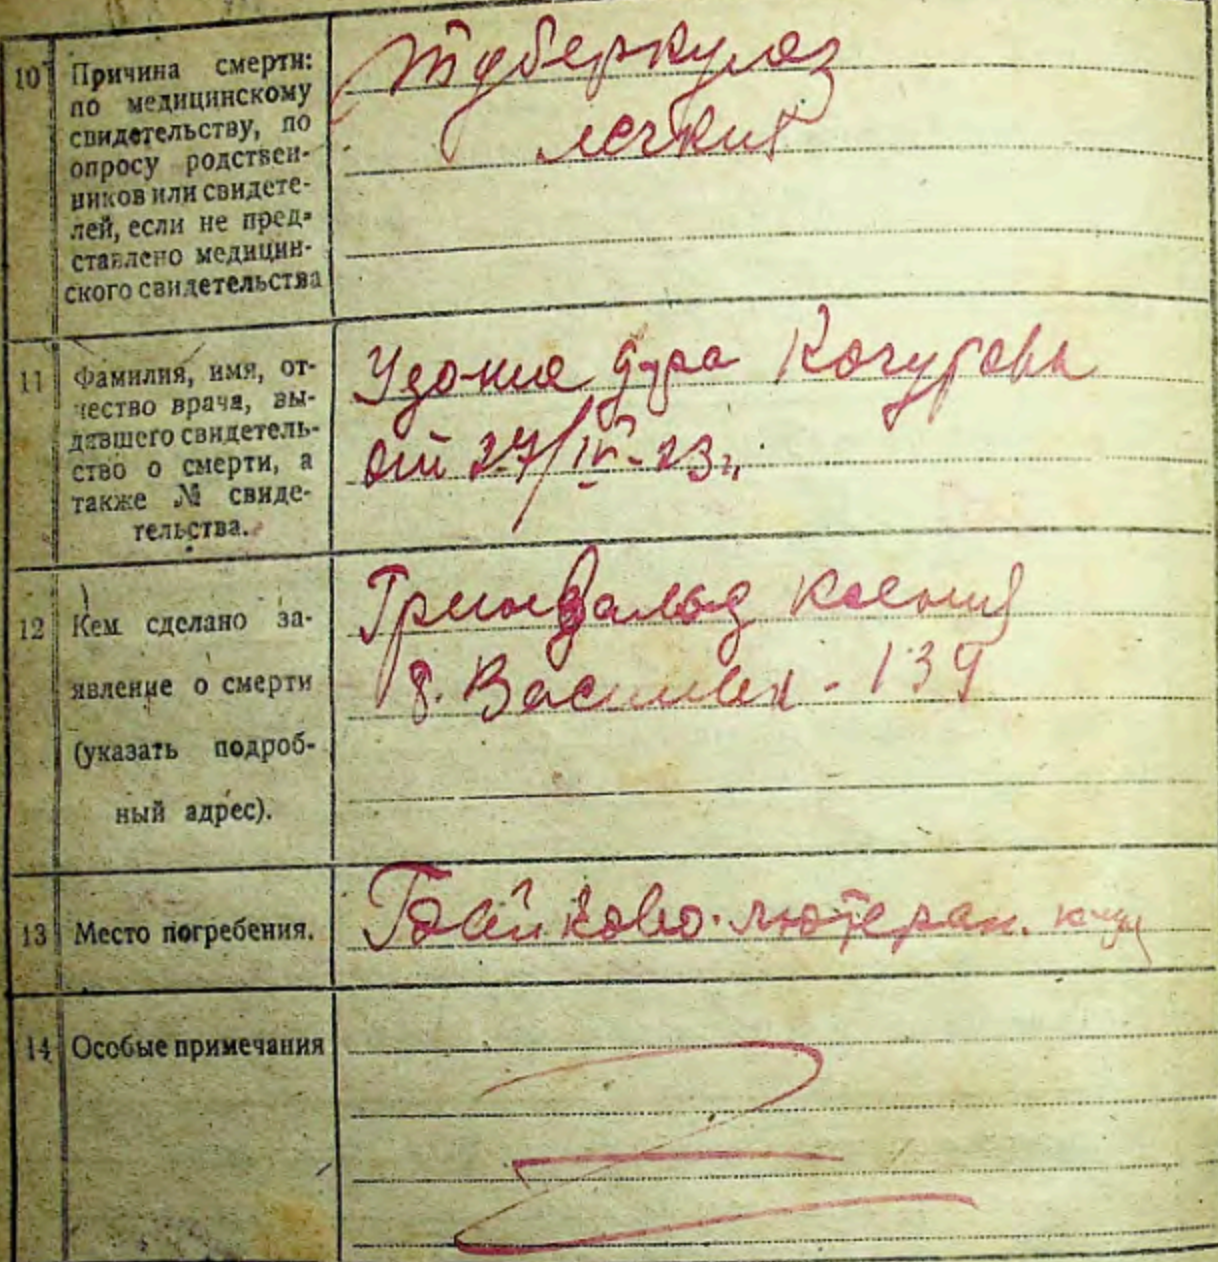 10 Причина смерти:
по медицинскому
свидетельству, по
опросу родствен-
ников или свидете-
лей, если не пред-
ставлено медицин-
ского свидетельства
Туберкулез
легких
11 Фамилия, имя, от-
чество врача, вы-
давшего свидетель-
ство о смерти, а
также № свиде-
тельства.
Удо-ние д-ра
от 27/IV-23 г.
12 Кем сделано за-
явление о смерти
(указать подроб-
ный адрес).
Гринвальд Ксения
- 139
13 Место погребения.
лютеран.
14 Особые примечания